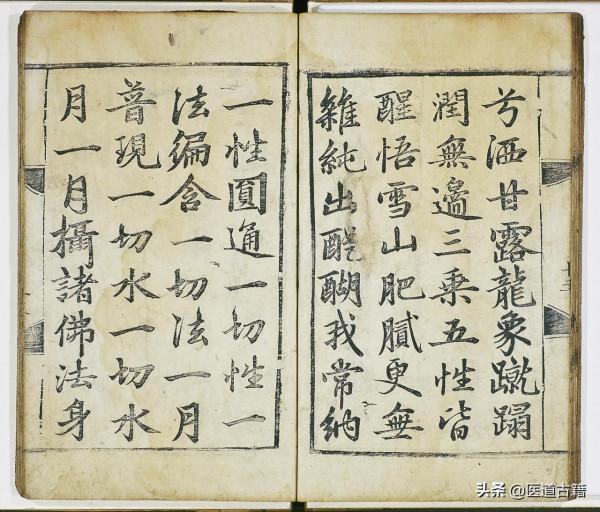 兮洒甘露龍象蹴蹋
潤無邉三乘五性皆
醒悟雪山肥膩更無
雜純出醍醐我常納
一性圓通一切性一
法編含一切法一月
普現一切水一切水
月一月攝諸佛法身
头条 @医道古籍